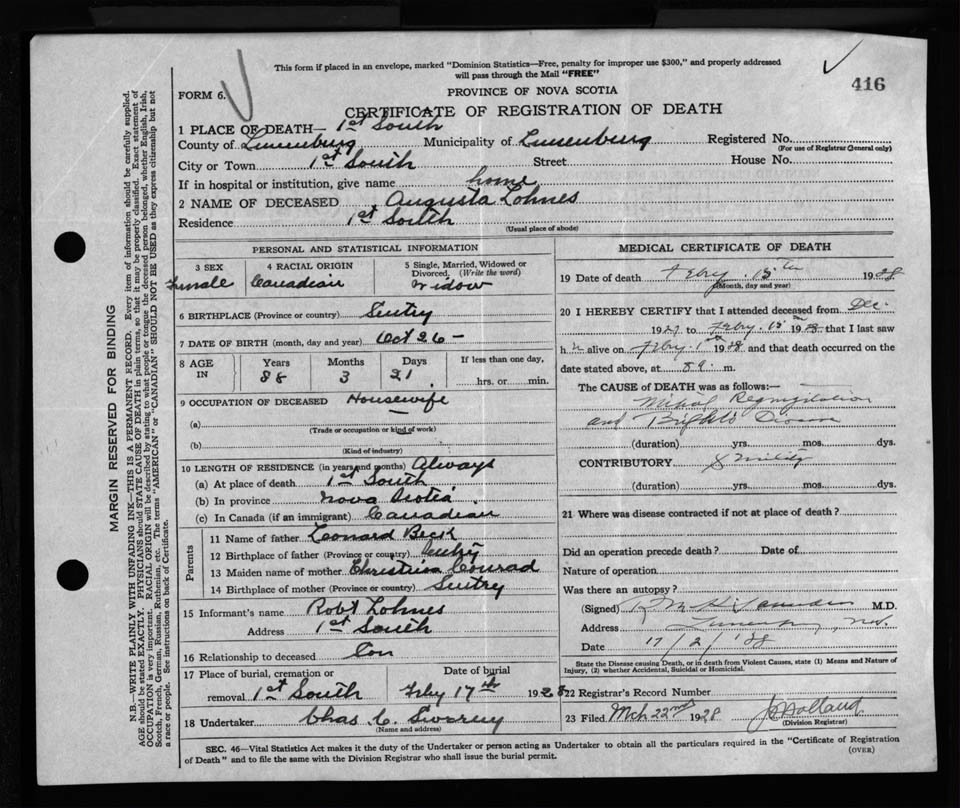 This form if placed in an envelope, marked "Dominion Statistics—Free, penalty for improper use $300," and properly addressed
will pass through the Mail "FREE"
416
FORM 6.
PROVINCE OF NOVA SCOTIA
CERTIFICATE OF REGISTRATION OF DEATH
1 PLACE OF DEATH— 1st South
County of Lunenburg Municipality of Lunenburg Registered No.
(For use of Registrar General only)
City or Town 1st South Street House No.
If in hospital or institution, give name home
2 NAME OF DECEASED Augusta Lohnes
Residence 1st South
(Usual place of abode)
PERSONAL AND STATISTICAL INFORMATION
3 SEX Female
4 RACIAL ORIGIN Canadian
5 Single, Married, Widowed or Divorced. (Write the word) Widow
6 BIRTHPLACE (Province or country)
7 DATE OF BIRTH (month, day and year) Oct 26 -
8 AGE IN Years 88 Months 3 Days 21 If less than one day, hrs. or min.
9 OCCUPATION OF DECEASED Housewife
(a)
(Trade or occupation or kind of work)
(b)
(Kind of industry)
10 LENGTH OF RESIDENCE (in years and months) Always
(a) At place of death 1st South
(b) In province Nova Scotia
(c) In Canada (if an immigrant) Canadian
Parents
11 Name of father Leonard Beck
12 Birthplace of father (Province or country)
13 Maiden name of mother Christina Conrad
14 Birthplace of mother (Province or Country)
15 Informant's name Robt Lohnes
Address 1st South
16 Relationship to deceased Son
17 Place of burial, cremation or removal 1st South Date of burial Feby 17th 1928
18 Undertaker Chas C.
(Name and address)
MEDICAL CERTIFICATE OF DEATH
19 Date of death Febry. 15th 1928
(Month, day and year)
20 I HEREBY CERTIFY that I attended deceased from Dec.
1927 to Febry. 15th 1928 that I last saw
h alive on Febry. 1928 and that death occurred on the
date stated above, at m.
The CAUSE of DEATH was as follows:—
Mitral Regurgitation
and
(duration) yrs. mos. dys.
CONTRIBUTORY Senility
(duration) yrs. mos. dys.
21 Where was disease contracted if not at place of death?
Did an operation precede death? Date of
Nature of operation
Was there an autopsy?
(Signed) M.D.
Address
Date 17/2/'28
State the Disease causing Death, or in death from Violent Causes, state (1) Means and Nature of
Injury, (2) whether Accidental, Suicidal or Homicidal.
22 Registrar's Record Number
23 Filed Mch 22nd 1928 Holland
(Division Registrar)
SEC. 46—Vital Statistics Act makes it the duty of the Undertaker or person acting as Undertaker to obtain all the particulars required in the "Certificate of Registration
of Death" and to file the same with the Division Registrar who shall issue the burial permit.
(OVER)
MARGIN RESERVED FOR BINDING
N.B.—WRITE PLAINLY WITH UNFADING INK—THIS IS A PERMANENT RECORD. Every item of information should be carefully supplied.
AGE should be stated EXACTLY. PHYSICIANS should STATE CAUSE OF DEATH in plain terms, so that it may be properly classified. Exact statement of
OCCUPATION is very important. RACIAL ORIGIN will be described by stating to what people or tongue the deceased person belonged, whether English, Irish,
Scotch, French, German, Russian, Ruthenian, etc. The terms "AMERICAN" or "CANADIAN" SHOULD NOT BE USED as they express citizenship but not
a race or people. See instructions on back of Certificate.